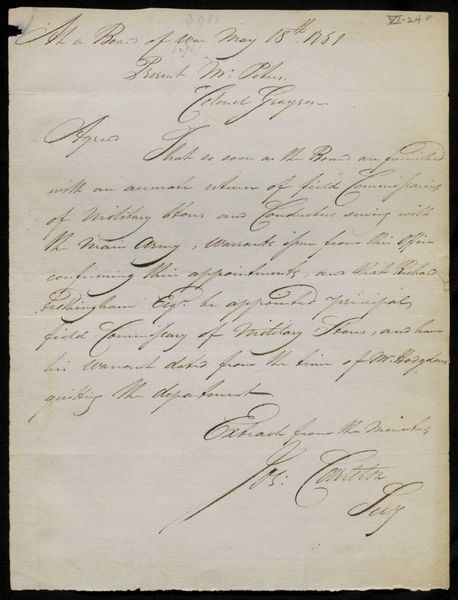 3988
VI-24
At a Board of War May 18th. 1781
Present Mr. Peters
Colonel Grayson
Agreed That so soon as the Board are furnished
with an accurate return of field Commissaries
of Military Stores and Conductors serving with
the main Army, Warrants issue from this Office
confirming their appointments, and that Richard
Frothingham Esqr. be appointed principal
field Commissary of Military Stores, and have
his warrant dated from the time of Mr. Hodgdons
quitting the department
Extract from the Minutes
Jos: Carleton
Secy